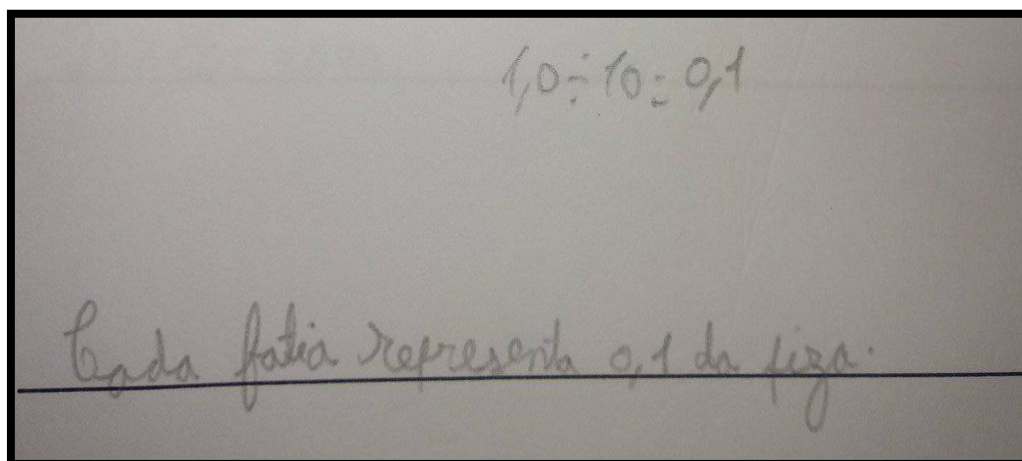 1,0÷10=0,1
Cada fatia representa 0,1 da piza.